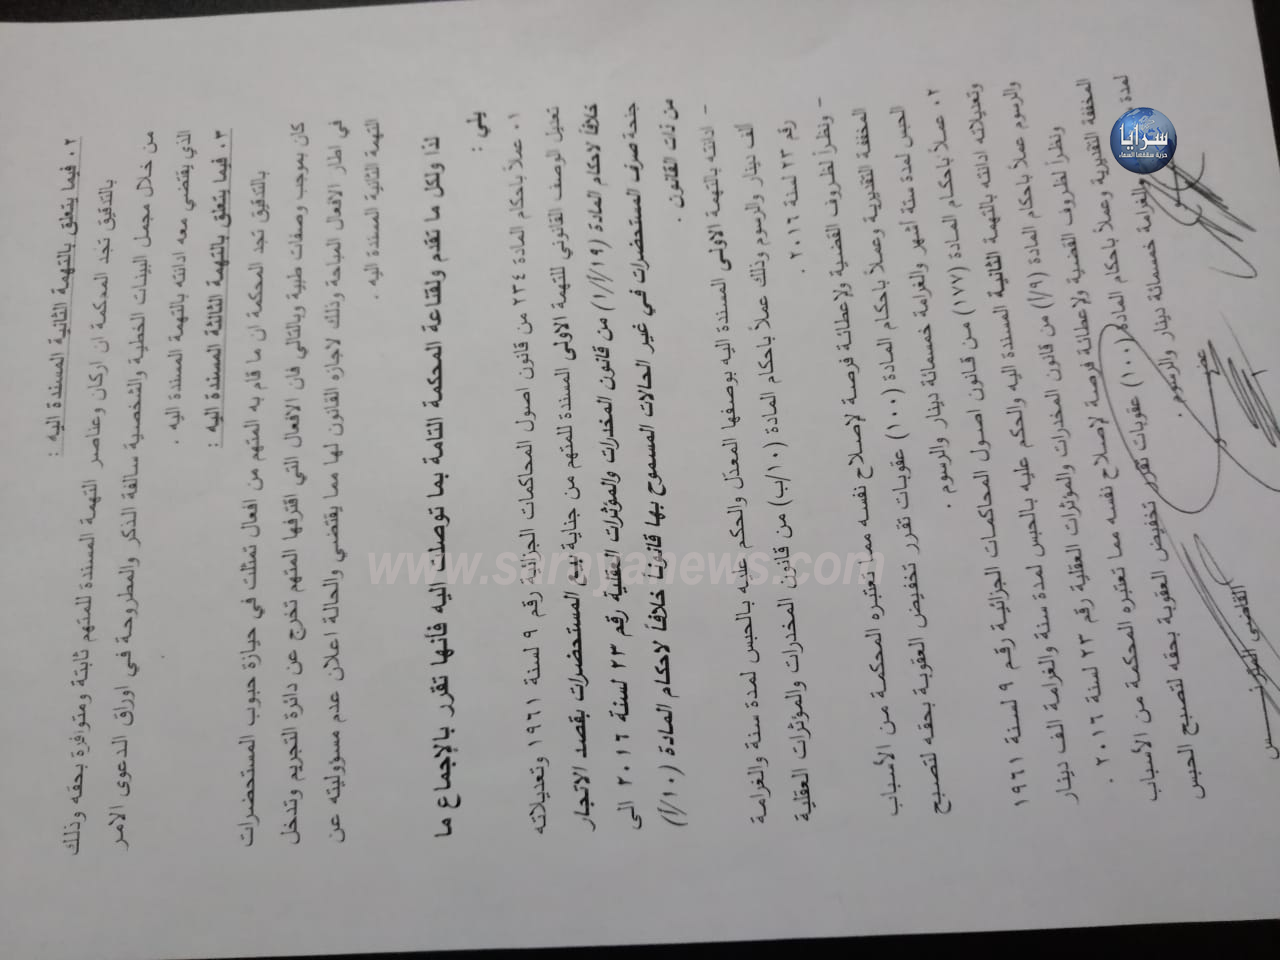 ٢. فيما يتعلق بالتهمة الثانية المسندة اليه :
بالتدقيق تجد المحكمة ان اركان وعناصر التهمة المسندة للمتهم ثابتة ومتوافرة بحقه وذلك
من خلال مجمل البينات الخطية والشخصية سالفة الذكر والمطروحة في اوراق الدعوى الامر
الذي يقتضي معه ادانته بالتهمة المسندة اليه .
٣. فيما يتعلق بالتهمة الثالثة المسندة اليه :
بالتدقيق تجد المحكمة ان ما قام به المتهم من افعال تمثلت في حيازة حبوب المستحضرات
كان بموجب وصفات طبية وبالتالي فان الافعال التي اقترفها المتهم تخرج عن دائرة التجريم وتدخل
في اطار الافعال المباحة وذلك لاجازه القانون لها مما يقتضي والحالة اعلان عدم مسؤوليته عن
التهمة الثانية المسندة اليه .
لذا ولكل ما تقدم ولقناعة المحكمة التامة بما توصلت اليه فأنها تقرر بالإجماع ما
يلي :
١. عملاً باحكام المادة ٢٣٤ من قانون اصول المحاكمات الجزائية رقم ٩ لسنة ١٩٦١ وتعديلاته
تعديل الوصف القانوني للتهمة الاولى المسندة للمتهم من جناية بيع المستحضرات بقصد الاتجار
خلافاً لاحكام المادة (١٩/أ/١) من قانون المخدرات والمؤثرات العقلية رقم ٢٣ لسنة ٢٠١٦ الى
جنحة صرف المستحضرات في غير الحالات المسموح بها قانوناً خلافاً لاحكام المادة (١٠/أ)
من ذات القانون .
- ادانته بالتهمة الاولى المسندة اليه بوصفها المعدّل والحكم عليه بالحبس لمدة سنة والغرامة
الف دينار والرسوم وذلك عملاً باحكام المادة (١٠/ب) من قانون المخدرات والمؤثرات العقلية
رقم ٢٣ لسنة ٢٠١٦ .
- ونظراً لظروف القضية ولاعطائه فرصة لإصلاح نفسه مما تعتبره المحكمة من الأسباب
المخففة التقديرية وعملاً باحكام المادة (١٠٠) عقوبات تقرر تخفيض العقوبة بحقه لتصبح
الحبس لمدة ستة أشهر والغرامة خمسمائة دينار والرسوم .
٢. عملاً باحكام المادة (١٧٧) من قانون اصول المحاكمات الجزائية رقم ٩ لسنة ١٩٦١
وتعديلاته ادانته بالتهمة الثانية المسندة اليه والحكم عليه بالحبس لمدة سنة والغرامة الف دينار
والرسوم عملاً باحكام المادة (٩/أ) من قانون المخدرات والمؤثرات العقلية رقم ٢٣ لسنة ٢٠١٦ .
ونظراً لظروف القضية ولاعطائه فرصة لإصلاح نفسه مما تعتبره المحكمة من الأسباب
المخففة التقديرية وعملاً باحكام المادة (١٠٠) عقوبات تقرر تخفيض العقوبة بحقه لتصبح الحبس
لمدة والغرامة خمسمائة دينار والرسوم .
عضو
عضو
القاضي المؤنس
سرايا
حرية سقفها السماء
www.sarayanews.com